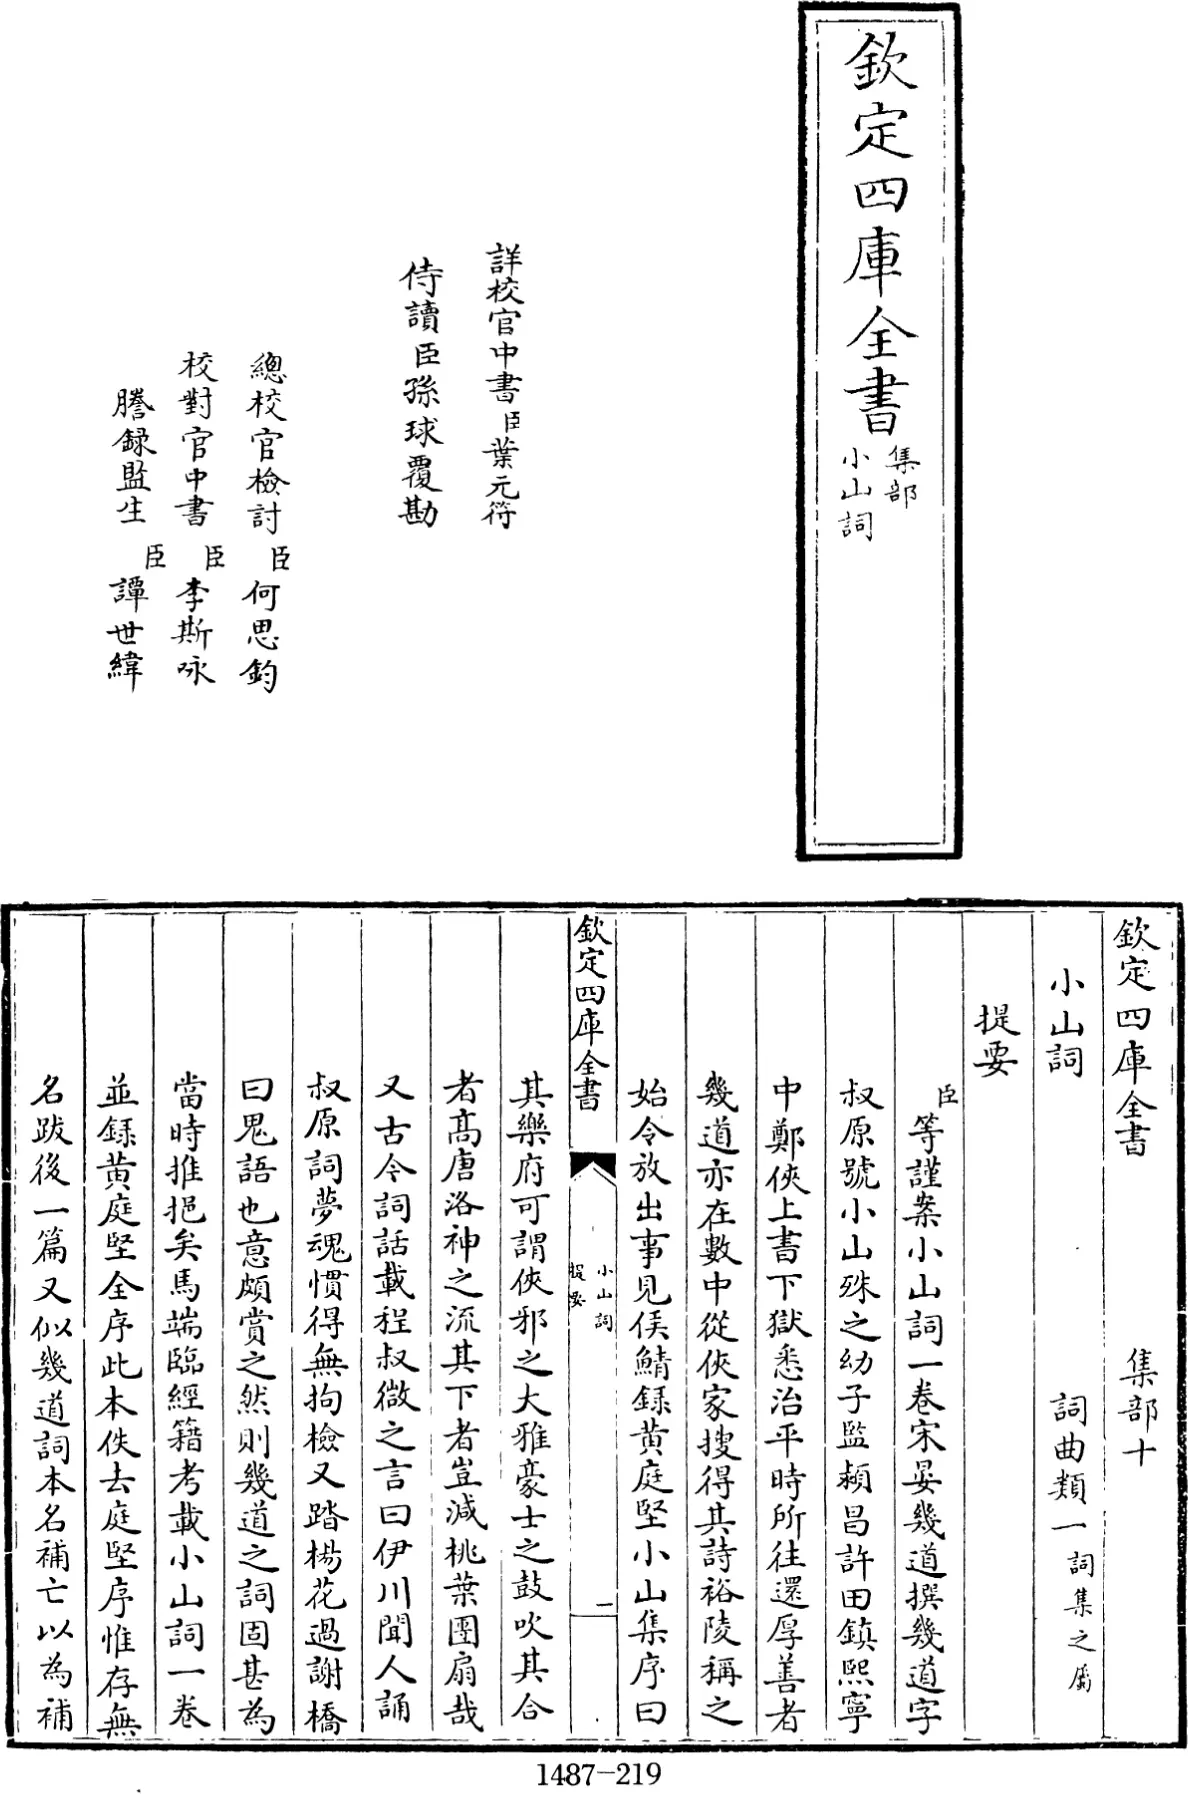 欽定四庫全書
集部
小山詞
詳校官中書臣葉元符
侍讀臣孫球覆勘
總校官檢討臣何思鈞
校對官中書臣李斯咏
謄錄監生臣譚世緯
欽定四庫全書 集部十
小山詞 詞曲類一詞集之屬
提要
臣等謹案小山詞一卷宋晏幾道撰幾道字
叔原號小山殊之幼子監潁昌許田鎮熙寧
中鄭俠上書下獄悉治平時所往還厚善者
幾道亦在數中從俠家搜得其詩裕陵稱之
始令放出事見侯鯖錄黄庭堅小山集序曰
欽定四庫全書
小山詞
提要
一
其樂府可謂俠邪之大雅豪士之鼓吹其合
者髙唐洛神之流其下者豈減桃葉團扇哉
又古今詞話載程叔微之言曰伊川聞人誦
叔原詞夢魂慣得無拘檢又踏楊花過謝橋
曰鬼語也意頗賞之然則幾道之詞固甚為
當時推挹矣馬端臨經籍考載小山詞一卷
並錄黄庭堅全序此本佚去庭堅序惟存無
名跋後一篇又似幾道詞本名補亡以為補
1487-219